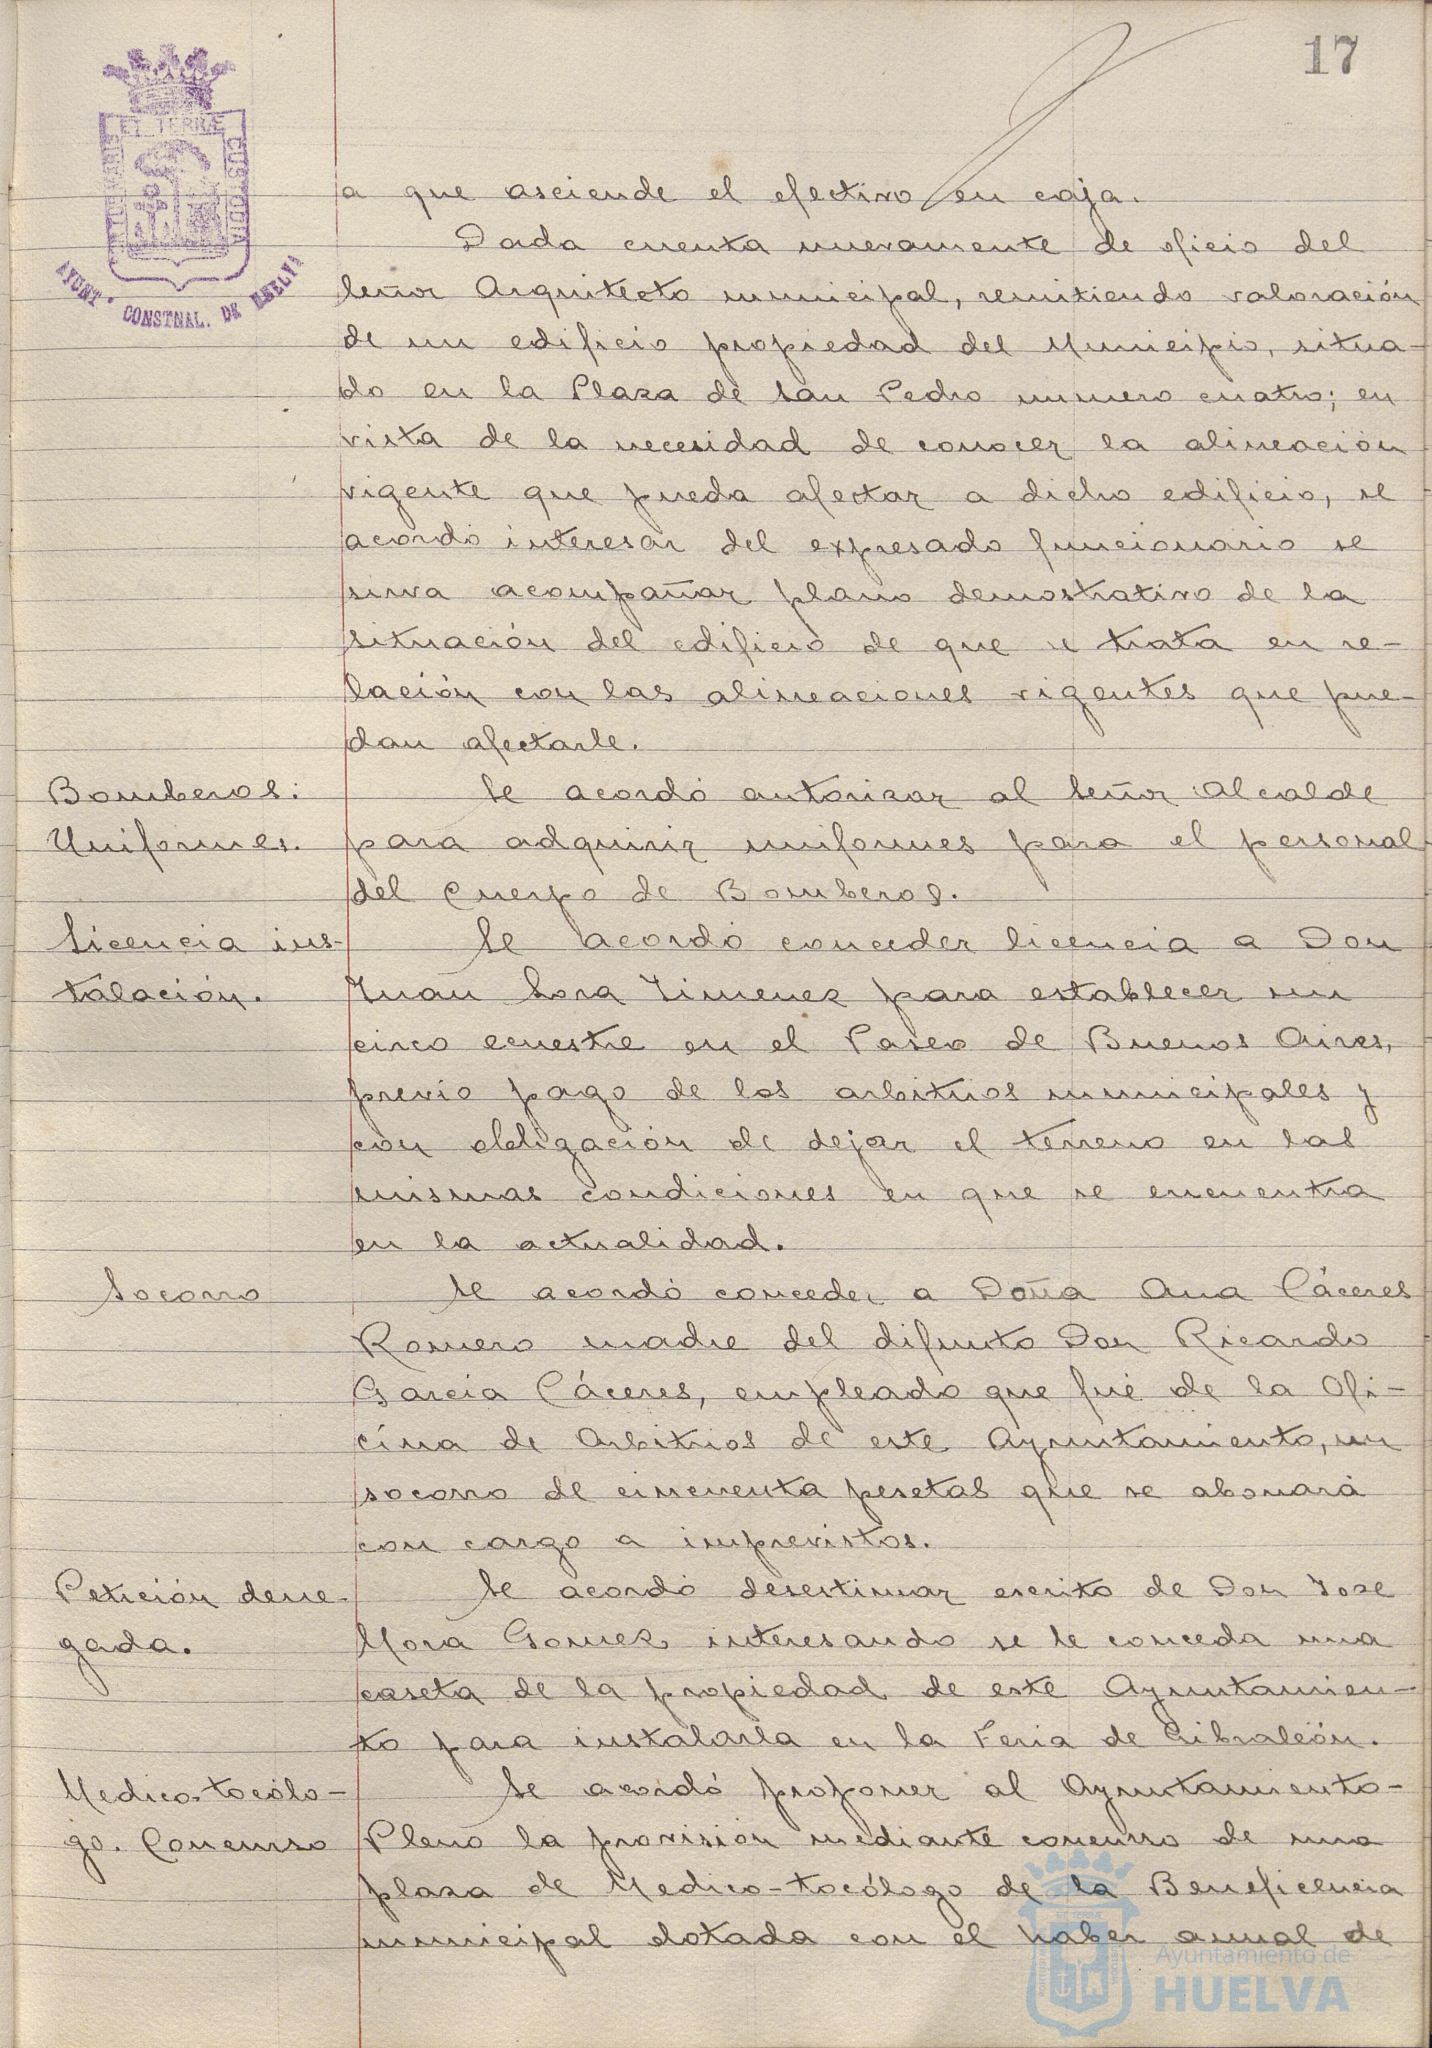 17
PORTUS MARIS ET TERRÆ CUSTODIA
AYUNT° CONSTNAL. DE HUELVA
a que asciende el efectivo en caja.
Dada cuenta nuevamente de oficio del
Señor Arquitecto municipal, remitiendo valoración
de un edificio propiedad del Municipio, situa-
do en la Plaza de San Pedro numero cuatro; en
vista de la necesidad de conocer la alineación
vigente que pueda afectar a dicho edificio, se
acordó interesar del expresado funcionario se
sirva acompañar plano demostrativo de la
situación del edificio de que se trata en re-
lación con las alineaciones vigentes que pue-
dan afectarle.
Bomberos:
Uniformes.
Se acordó autorizar al Señor Alcalde
para adquirir uniformes para el personal
del Cuerpo de Bomberos.
Licencia ins-
talación.
Se acordó conceder licencia a Don
Juan Lora Jimenez para establecer un
circo ecuestre en el Paseo de Buenos Aires,
previo pago de los arbitrios municipales y
con obligación de dejar el terreno en las
mismas condiciones en que se encuentra
en la actualidad.
Socorro
Se acordó conceder a Doña Ana Cáceres
Romero madre del difunto Don Ricardo
García Cáceres, empleado que fué de la Ofi-
cina de Arbitrios de este Ayuntamiento, un
socorro de cincuenta pesetas que se abonará
con cargo a imprevistos.
Petición dene-
gada.
Se acordó desestimar escrito de Don Jose
Mora Gomez interesando se le conceda una
caseta de la propiedad de este Ayuntamien-
to para instalarla en la Feria de Gibraleón.
Medico-tocólo-
go. Concurso
Se acordó proponer al Ayuntamiento-
Pleno la provisión mediante concurso de una
plaza de Medico-tocólogo de la Beneficencia
municipal dotada con el haber anual de
Ayuntamiento de
HUELVA